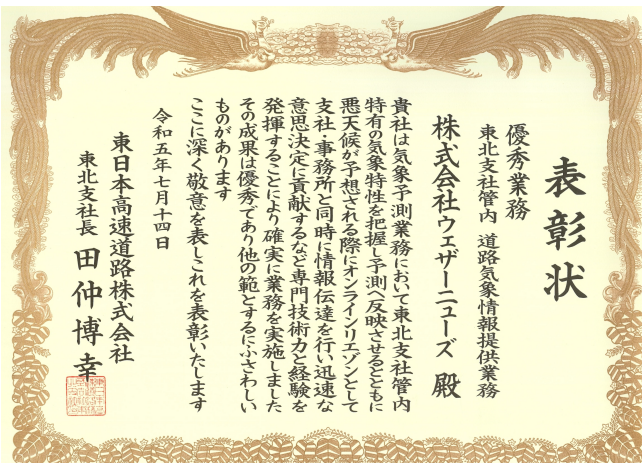 表彰状
優秀業務
東北支社管内 道路気象情報提供業務
株式会社ウェザーニューズ 殿
貴社は気象予測業務において東北支社管内
特有の気象特性を把握し予測へ反映させるとともに
悪天候が予想される際にオンラインリエゾンとして
支社・事務所と同時に情報伝達を行い迅速な
意思決定に貢献するなど専門技術力と経験を
発揮することにより確実に業務を実施しました
その成果は優秀であり他の範とするにふさわしい
ものがあります
ここに深く敬意を表しこれを表彰いたします
令和五年七月十四日
東日本高速道路株式会社
東北支社長 田仲博幸